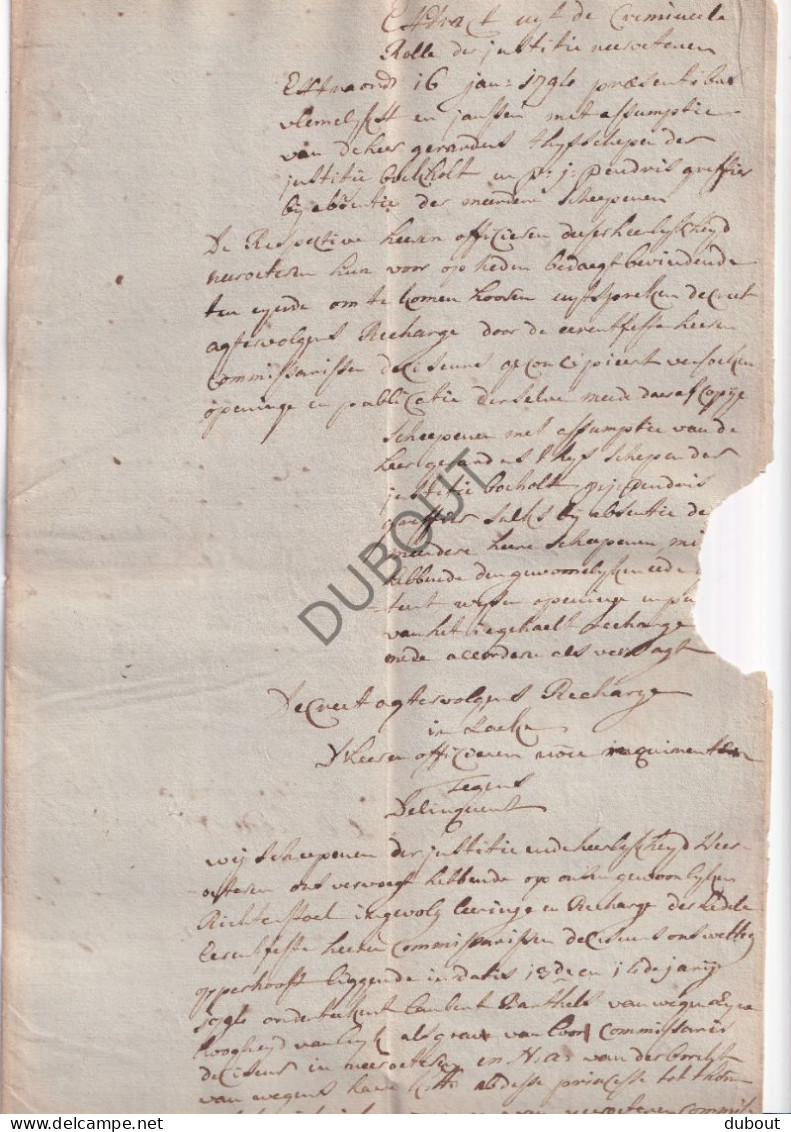 Extract uyt de Crimineele
Rolle der justitie neeroeteren
Extraord 16 jan: 1796 præsentibus
vlemelijckx en janssen met assumptie
van de heer gerardus thijs schepen der
justitie bocholt en p: j: pendris greffier
bij absentie der meerdere scheepenen
De Respective heeren officieren deser heerlijckheyd
neeroeteren hun voor op heden bedaegt bevindende
ten eynde om te komen hooren uytspreken decreet
agtervolgens Recharge door de eerentfeste heeren
Commissarissen deciseurs geconcipieert versoeken
openinge en publicatie derselve mede daeraf copije
scheepenen met assumptie van de
heer gerardus thijs schepen der
justitie bocholt p: j: pendris
greffier sulks bij absentie de
meerdere heere scheepenen
hebbende den gewoonelijken eede
openinge en
van het Recharge
mede accorderen als versogt
Decreet agtervolgens Recharge
in Saeke
D'heeren officieren requiranten
Tegens
Delinquent
DUBOUT
wij scheepenen der justitie ende heerlijckheyd Neer-
oeteren ons vervoegt hebbende op onsen gewoonlijken
Richterstoel ingevolg leeringe en Recharge der Edele
Eerentfeste heeren Commissarissen deciseurs ons wettig
opperhooft liggende in datis 13de en 16de jarij
1796 onderteekent Lambert Barthels van wegens
hoogheyd van luyk als grave van Loon Commissaris
deciseur in neeroeteren en van der
van wegens haere abdesse princesse tot thorn
van neeroeteren
dubout